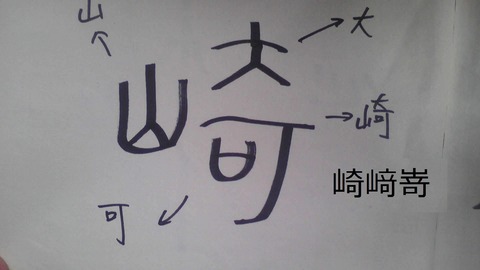 山
大
崎
崎
可
崎﨑嵜